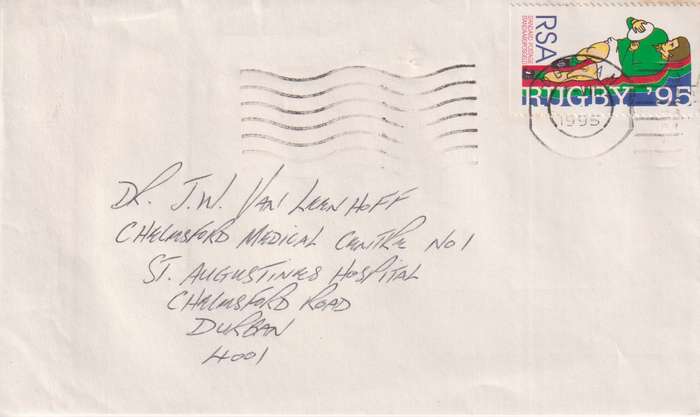 RSA
STANDARD POSTAGE
STANDAARDPOSGELD
RUGBY '95
1995
DR. J.W. VAN LEENHOFF
CHELMSFORD MEDICAL CENTRE NO 1
ST. AUGUSTINES HOSPITAL
CHELMSFORD ROAD
DURBAN
4001